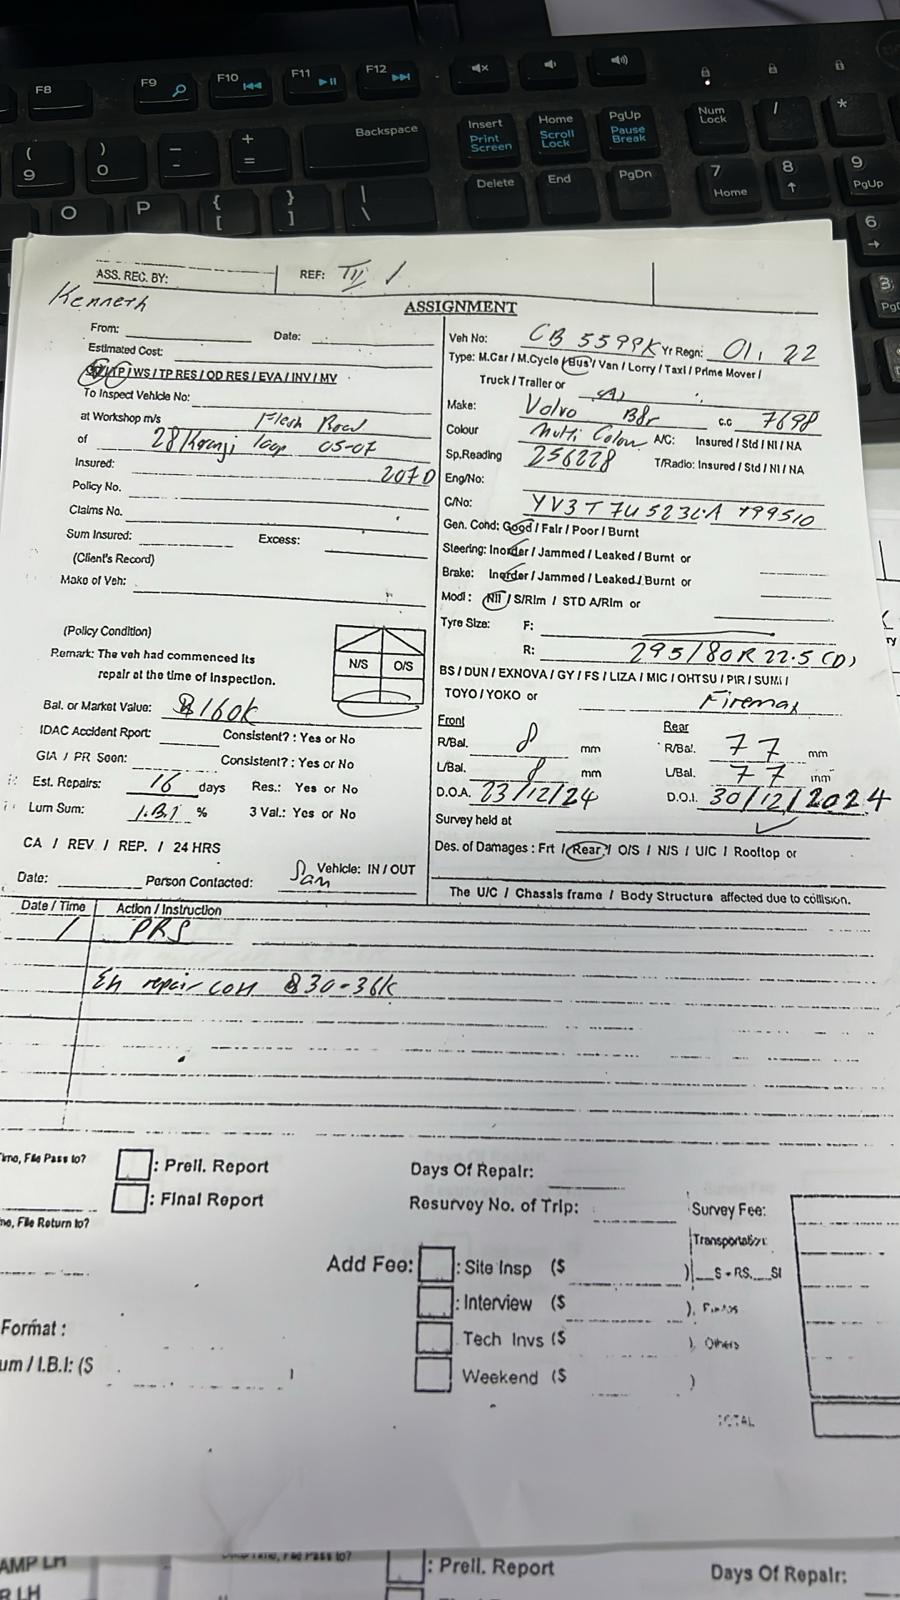 F8 F9 F10 F11 F12
( 9 ) 0 - - + = Backspace
Insert Print Screen Home Scroll Lock PgUp Pause Break Num Lock / *
Delete End PgDn 7 Home 8 9 PgUp
O P { [ } ] | \ 6
ASS. REC. BY: REF:
Kenneth
ASSIGNMENT
From: Date:
Estimated Cost:
/ TP / WS / TP RES / OD RES / EVA / INV / MV
To Inspect Vehicle No:
at Workshop m/s
of 28 Kranji loop 05-07
Insured: 207D
Policy No.
Claims No.
Sum Insured: Excess:
(Client's Record)
Make of Veh:
(Policy Condition)
Remark: The veh had commenced its
repair at the time of Inspection.
N/S O/S
Bal. or Market Value: $160K
IDAC Accident Rport: Consistent? : Yes or No
GIA / PR Seen: Consistent? : Yes or No
Est. Repairs: 16 days Res.: Yes or No
Lum Sum: I.B.I % 3 Val.: Yes or No
CA / REV / REP. / 24 HRS
Date: Person Contacted: Sam Vehicle: IN / OUT
Veh No: CB 5599K Yr Regn: 01, 22
Type: M.Car / M.Cycle / Bus / Van / Lorry / Taxi / Prime Mover /
Truck / Traller or
Make: Volvo B8r c.c 7698
Colour Multi Colour A/C: Insured / Std / NI / NA
Sp.Reading 256228 T/Radio: Insured / Std / NI / NA
Eng/No:
C/No:
Gen. Cond: Good / Fair / Poor / Burnt
Steering: Inorder / Jammed / Leaked / Burnt or
Brake: Inorder / Jammed / Leaked / Burnt or
Modi : Nil / S/Rim / STD A/Rim or
Tyre Size: F:
R: 295/80R 22.5 (D)
BS / DUN / EXNOVA / GY / FS / LIZA / MIC / OHTSU / PIR / SUMI /
TOYO / YOKO or Firemax
Front Rear
R/Bal. 8 mm R/Bal. 7 7 mm
L/Bal. 8 mm L/Bal. 7 7 mm
D.O.A. 23/12/24 D.O.I. 30/12/2024
Survey held at
Des. of Damages : Frt / Rear / O/S / N/S / U/C / Rooftop or
The U/C / Chassis frame / Body Structure affected due to collision.
Date / Time Action / Instruction
/ PRS
repair $30-36K
File Pass to? : Prell. Report Days Of Repair:
: Final Report Resurvey No. of Trip: Survey Fee:
File Return to? Transportation:
Add Fee: : Site Insp ($ ) S + RS. SI
: Interview ($ )
Format : Tech Invs ($ ) Others
um / I.B.I: ($ ) Weekend ($ )
TOTAL
AMP LH : Prell. Report Days Of Repair:
R LH